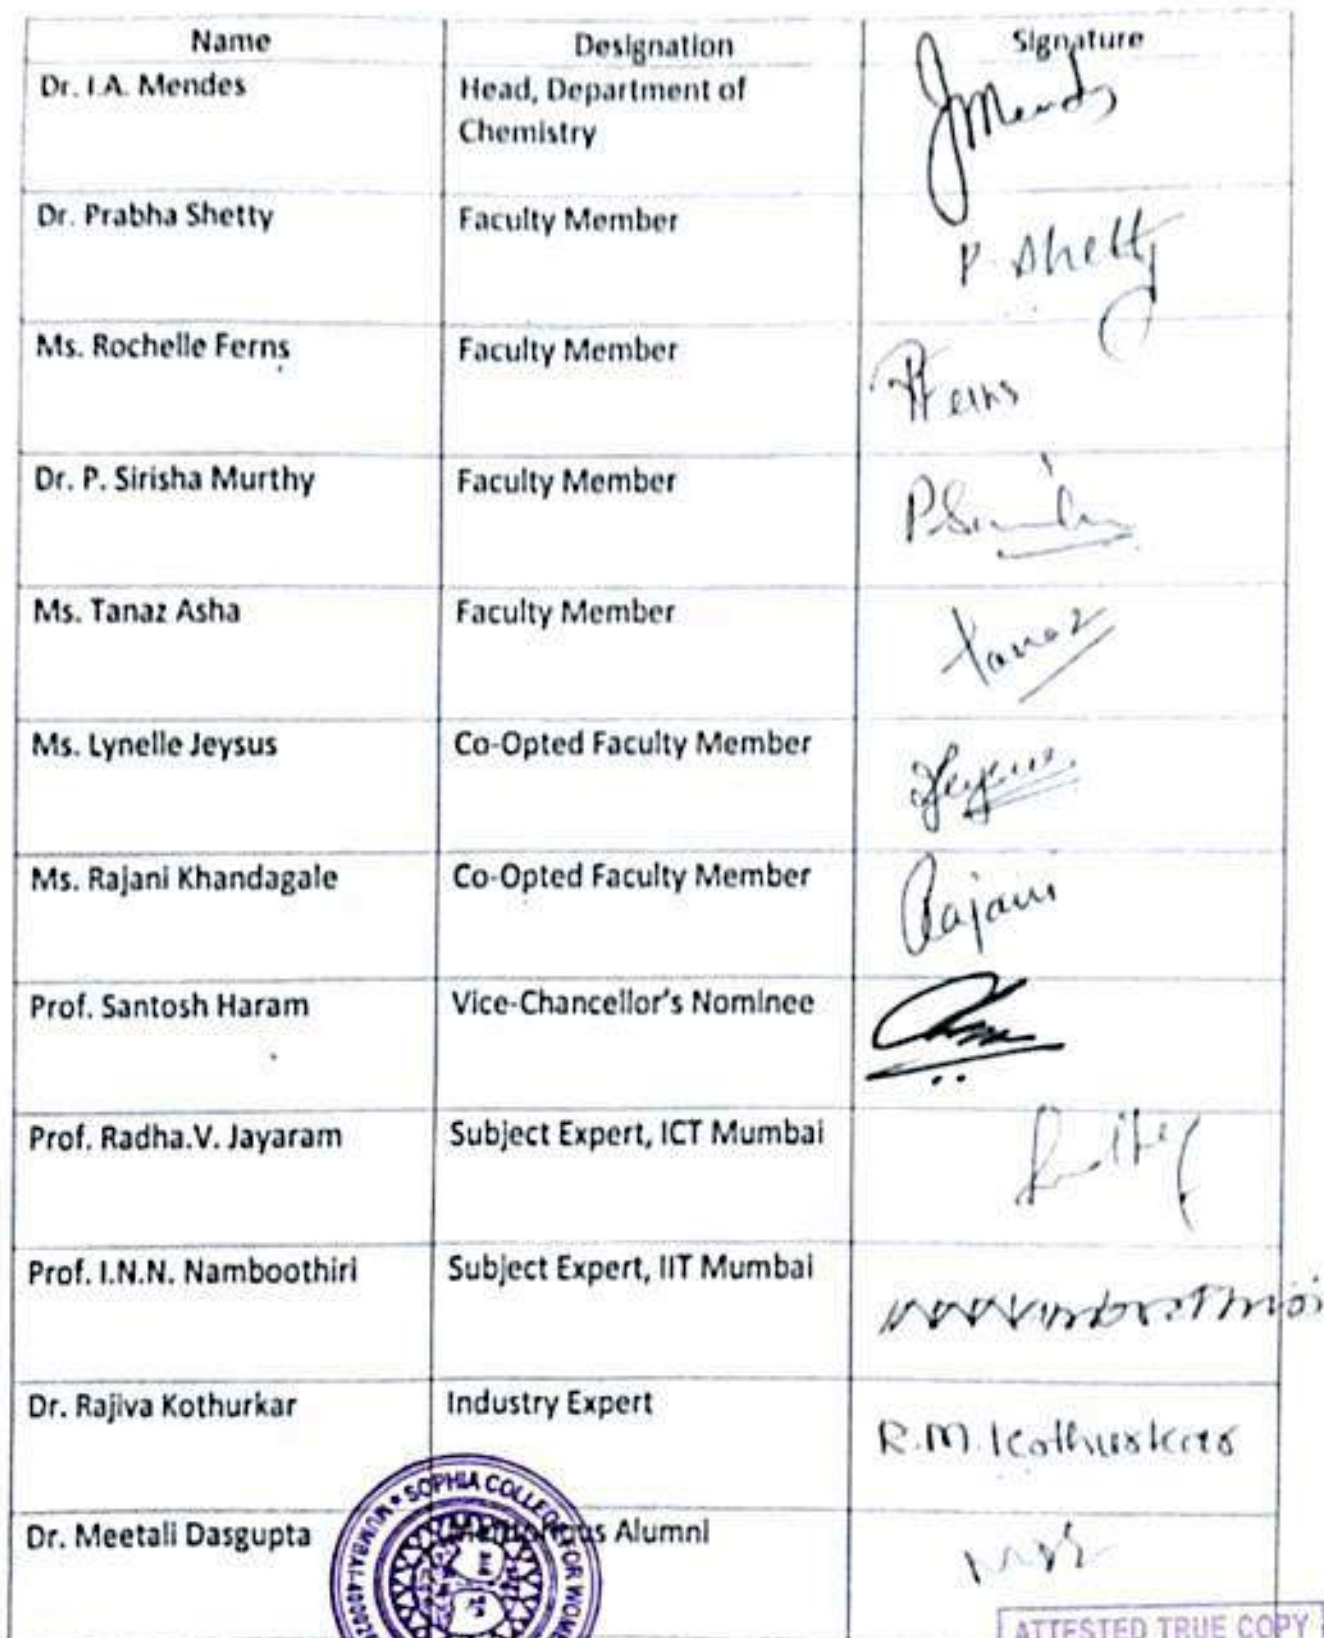 Name Designation Signature
Dr. I.A. Mendes Head, Department of
Chemistry
Mendes
Dr. Prabha Shetty Faculty Member
P. Shetty
Ms. Rochelle Ferns Faculty Member
Ferns
Dr. P. Sirisha Murthy Faculty Member
Ms. Tanaz Asha Faculty Member
Tanaz
Ms. Lynelle Jeysus Co-Opted Faculty Member
Jeysus
Ms. Rajani Khandagale Co-Opted Faculty Member
Rajani
Prof. Santosh Haram Vice-Chancellor's Nominee
Prof. Radha.V. Jayaram Subject Expert, ICT Mumbai
Prof. I.N.N. Namboothiri Subject Expert, IIT Mumbai
Dr. Rajiva Kothurkar Industry Expert
R.M. Kothurkar
SOPHIA COLLEGE FOR
MUMBAI
Dr. Meetali Dasgupta Alumni
ATTESTED TRUE COPY